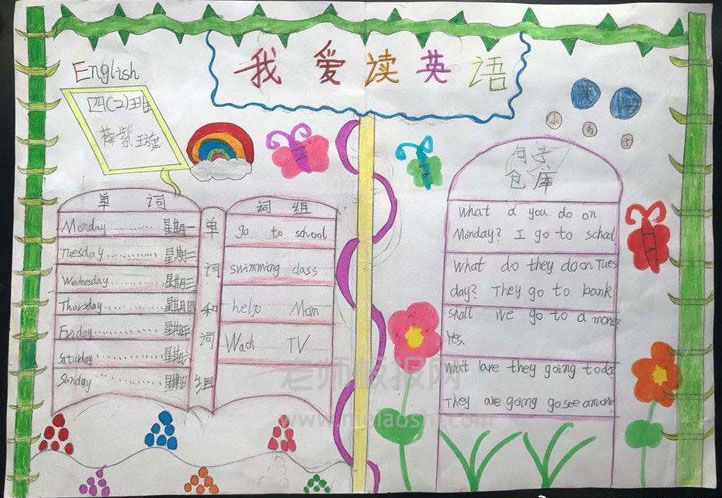 我爱读英语
English
四(2)班
单词
Monday............星期一
Tuesday............星期二
Wednesday............星期三
Thursday............星期四
Friday............星期五
Saturday............星期
Sunday............星期
单词和词组
词组
go to school
swimming class
help Mom
Wach TV
句子
仓库
What d you do on
Monday? I go to school
What do they do on Tues
day? They go to bank
shall we go to a move
Yes.
What are they going to do
They are going go see a move
老师板报网